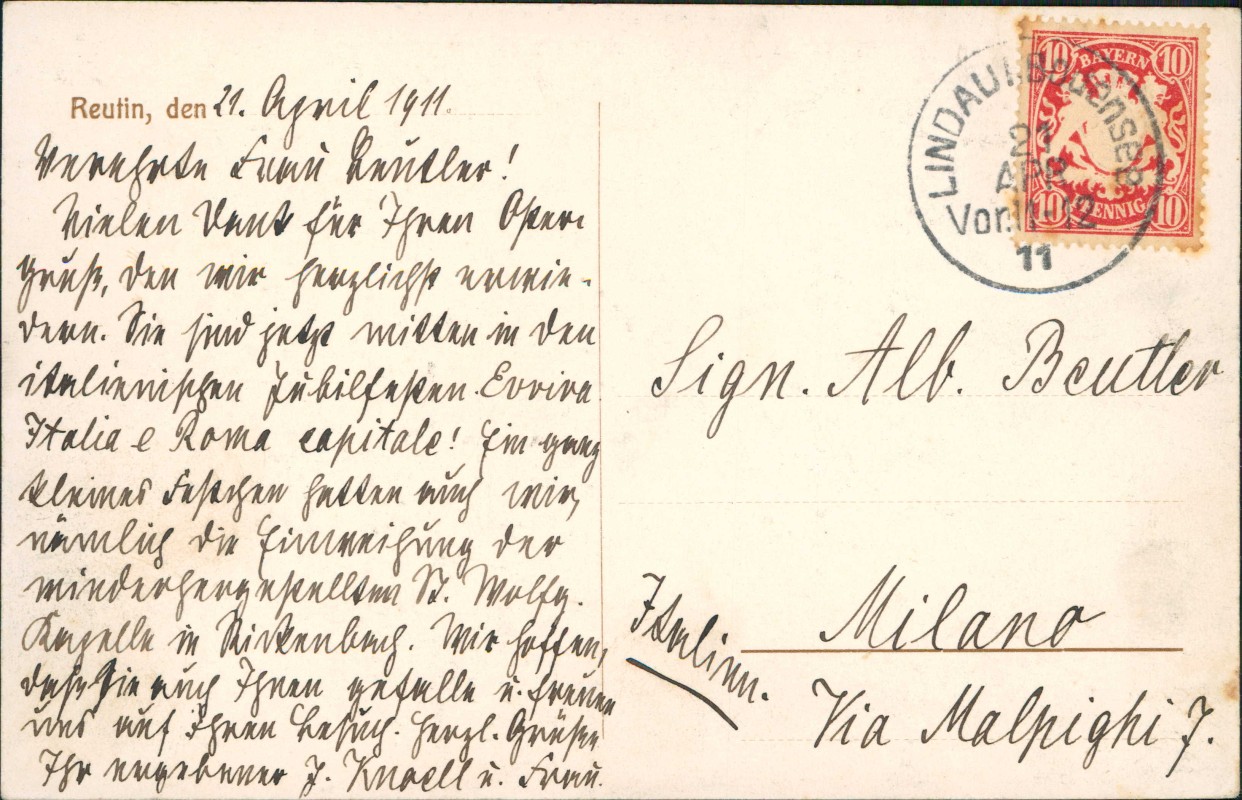 Reutin, den 21. April 1911.
Verehrte Frau Beutler!
Vielen Dank für Ihren Oster-
gruß, den wir herzlichst erwie-
dern. Sie sind jetzt mitten in den
italienischen Jubilfesten. Evviva
Italia e Roma capitale! Ein ganz
kleines Festchen hatten auch wir,
nämlich die Einweihung der
wiederhergestellten St. Wolfg.
Kapelle in Rickenbach. Wir hoffen,
daß sie auch Ihnen gefalle u. freuen
uns auf Ihren Besuch. Herzl. Grüße
Ihr ergebener J. Knoell u. Frau.
BAYERN
10 10
10 PFENNIG 10
LINDAU i. Bodensee
21
APR
Vor. 11-12
11
Sign. Alb. Beutler
Milano
Italien.
Via Malpighi 7.